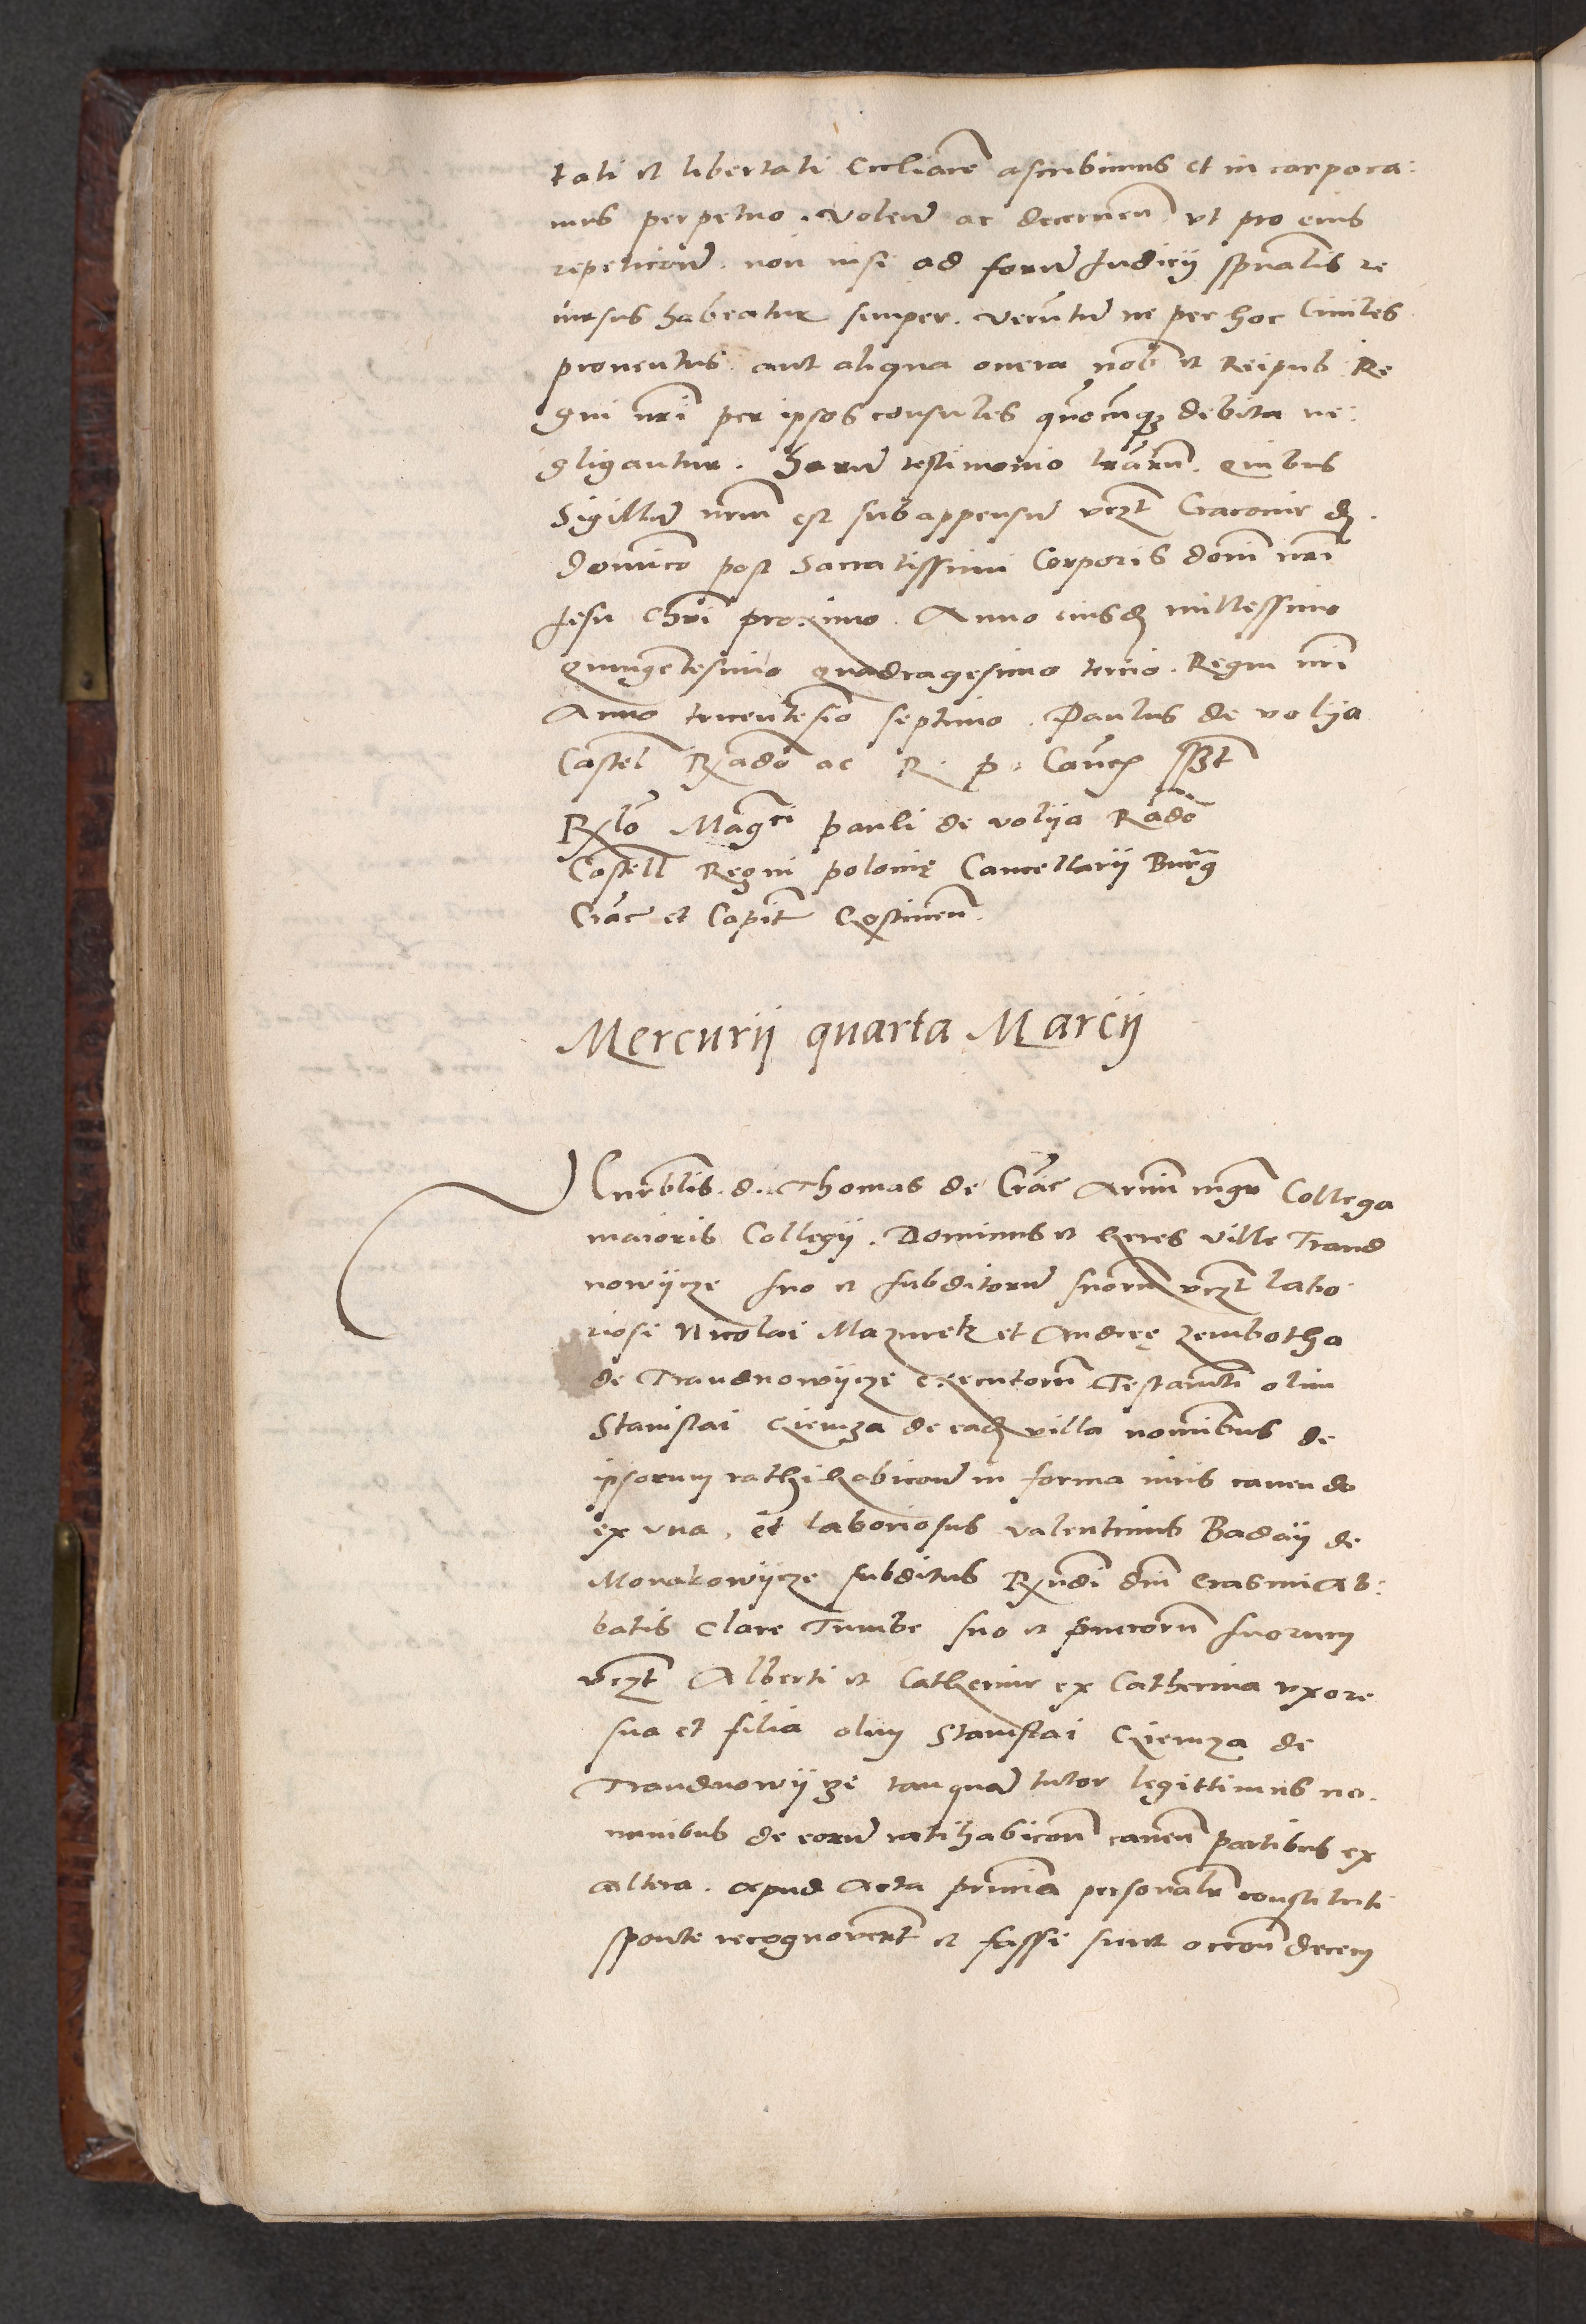 tati et libertati Eccliarē ascribimus et in corpora:
mus perpetuo. Volen̄ ac decernen̄ vt pro eius
repeticoн̄e non nisi ad forū Iudicij spūalis re
cursus habeatur semper. Verūtn̄ ne per hoc Civiles
proventus aut aliqua onera nob̄ et Reipub Re
gni nr̄i per ipsos consules quōcūq3 debita ne:
gligantur. Harū testimonio lr̄arū. quibus
Sigillū nr̄m est subappensū Craconie
Domīco post Sacratissimi Corporis domī nr̄i
Iesu Chr̄i proximo. Anno eiusd millessimo
quingētesimo quadragesimo tercio. Regni nr̄i
Anno tricentesīo septimo. Paulus de volija
Castel̄ Radō ac R. p. Canc̄
Rlo Magci pauli de volija Radō
Castell Regni polonię Cancellarij Burḡ
Crac̄ et Capit Gostinen̄.
Mercurij quarta Marcij
d. Thomas de Crac̄ Artiū mgr̄ Collega
maioris Collegij. Dominus et heres ville Trand
nowijcze suo et subditorū suorū vcz̄t labo
riosi Nicolai Mazurek et Andreę Zembotha
de Trandnowijcze executorū Testamēti olim
Stanislai Kiemza de ead villa nomībus de
ipsorum rathihabicoн̄e in forma iuris cavendo
ex vna. et laboriosus valentinus Badaij de
Morakowijcze subditus Rn̄di dn̄i Erasmi Ab:
batis Clare Tumbe suo et suorum
vcz̄t Alberti et Catherine ex Catherina vxore
sua et filia olim Stanislai Kiemza de
Trandnowijcze tanquā tutor legittimus no
minibus de eorū ratihabicoн̄e caven̄ partibus ex
altera. apud Acta prn̄cia personalr̄ constituti
sponte recognoverūt et fassi sunt decem